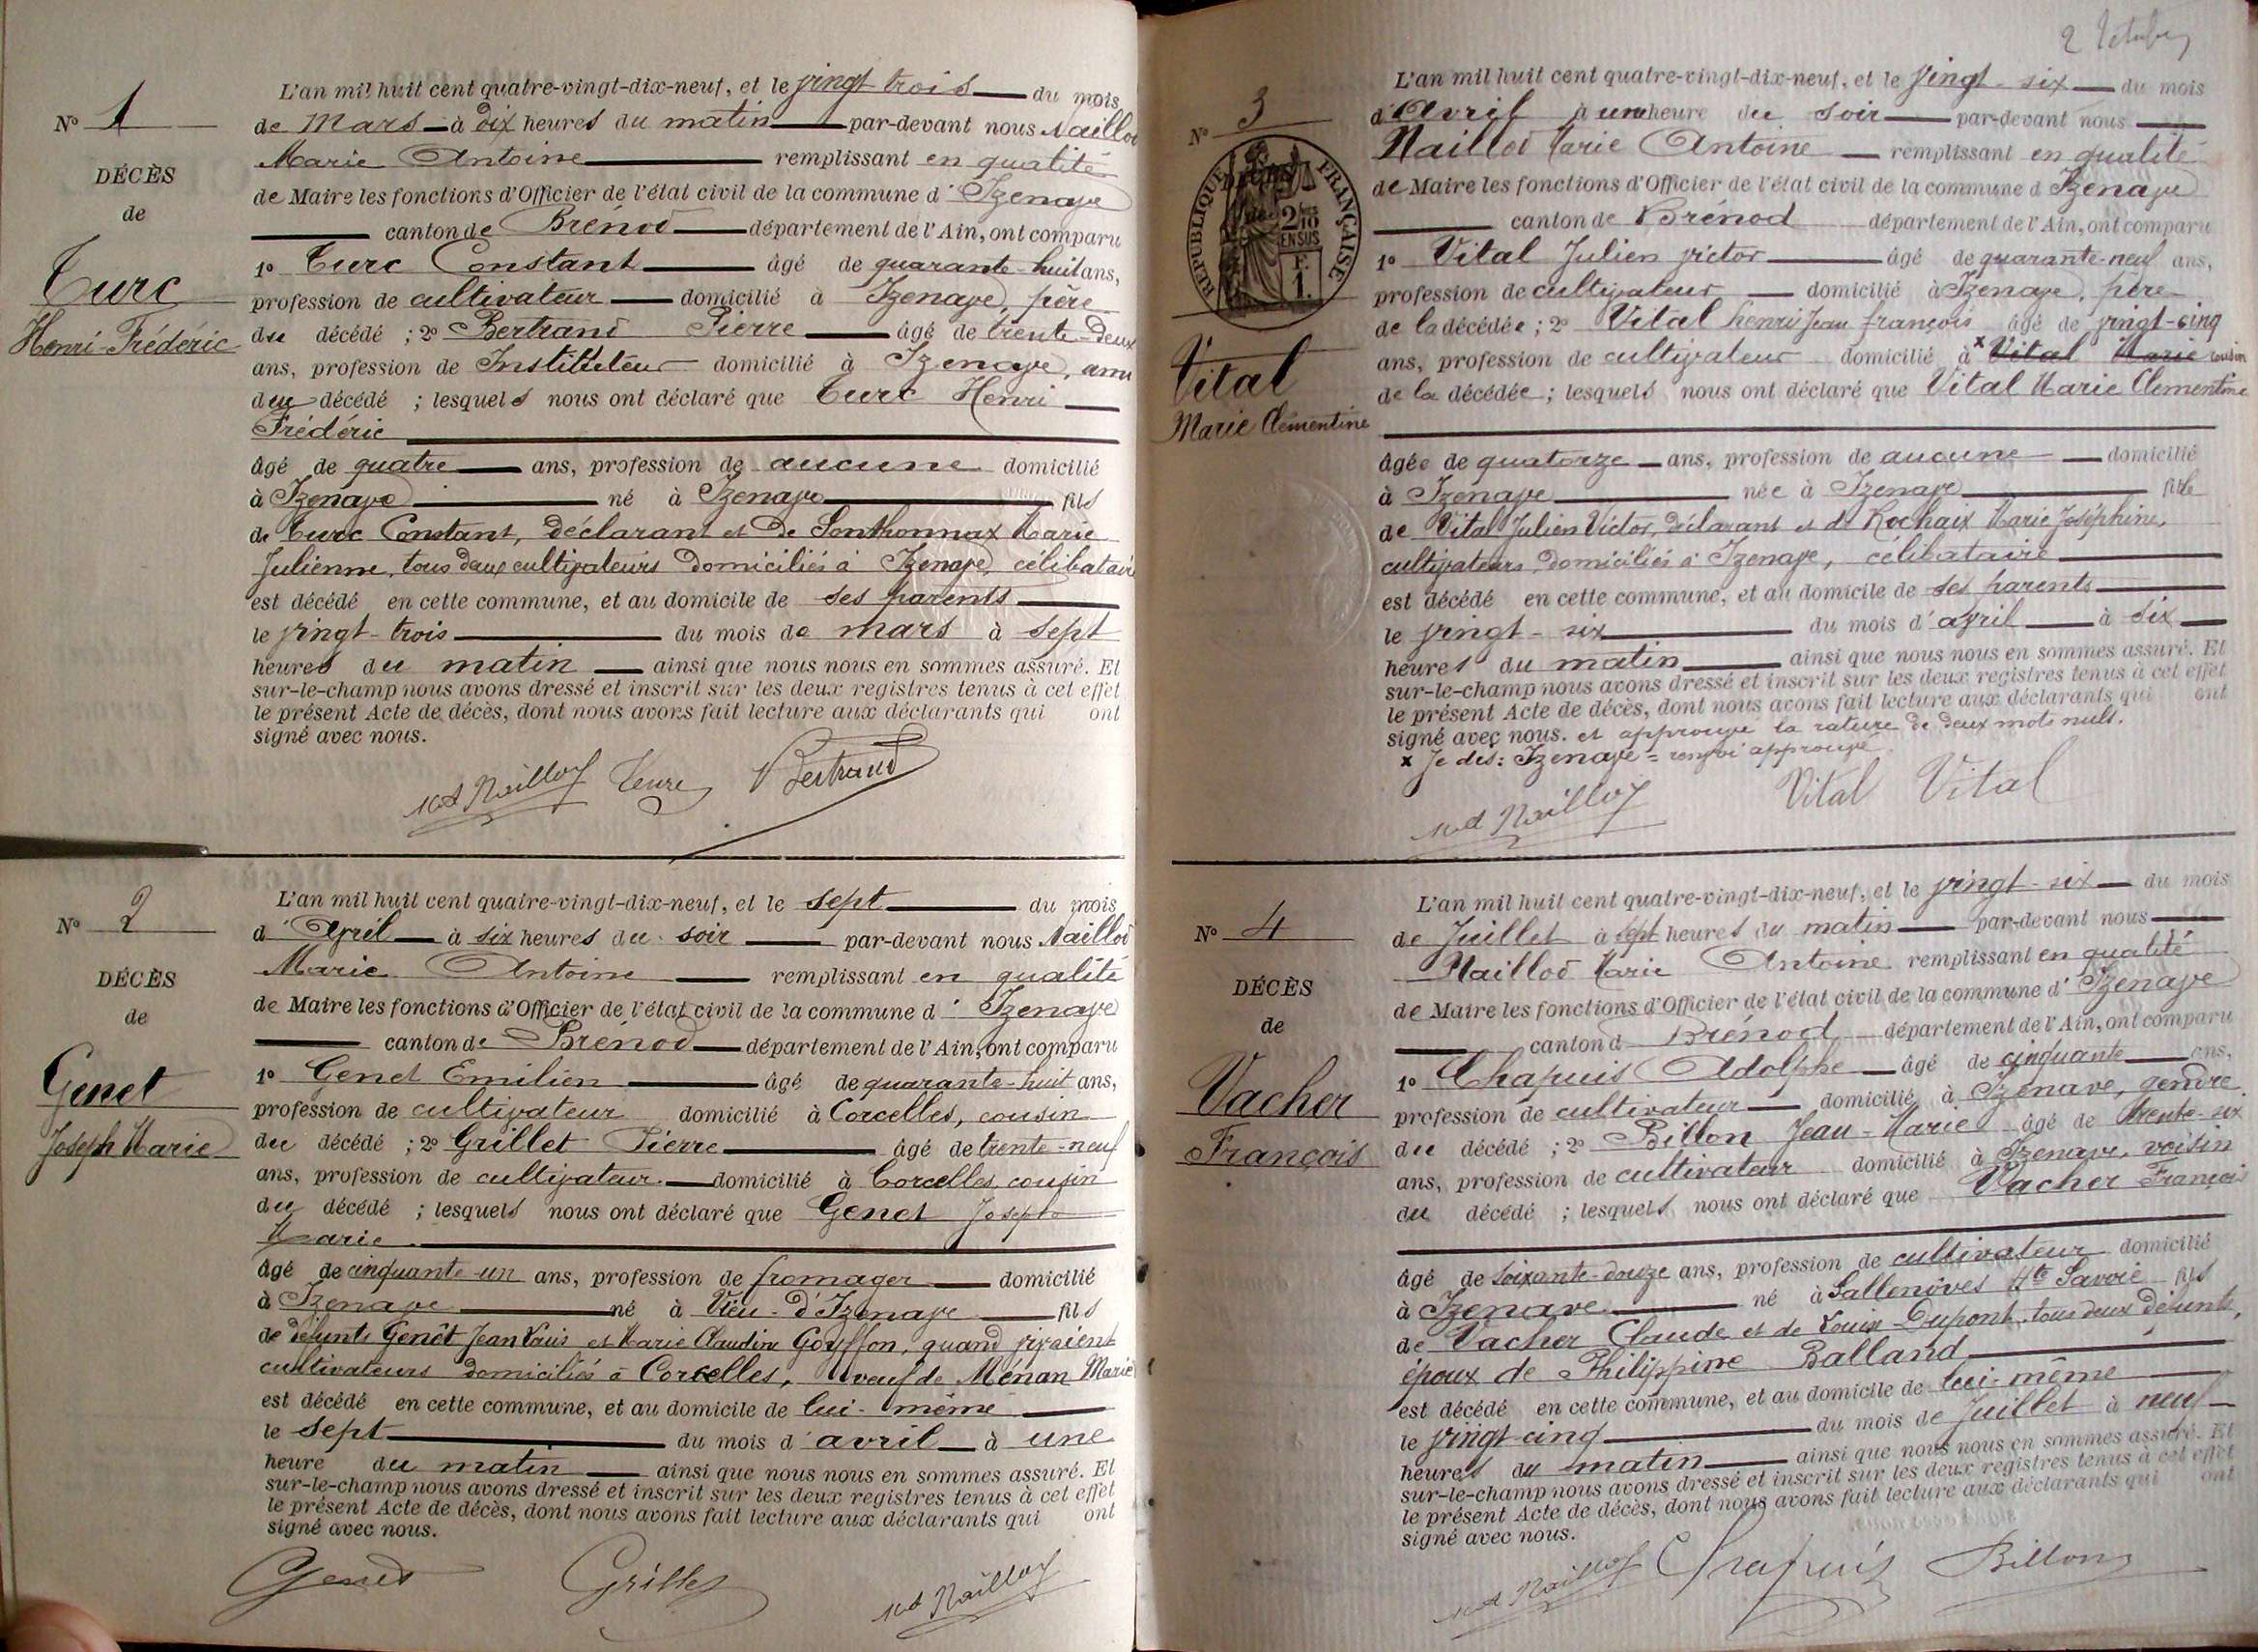 N° 1
DÉCÈS
de
Turc
Henri-Frédéric
L'an mil huit cent quatre-vingt-dix-neuf, et le vingt trois du mois
de Mars à dix heures du matin par-devant nous Naillod
Marie Antoine remplissant en qualité
de Maire les fonctions d'Officier de l'état civil de la commune d' Izenave
canton de Brénod département de l'Ain, ont comparu
1° Turc Constant âgé de quarante-huit ans,
profession de cultivateur domicilié à Izenave, père
du décédé ; 2° Bertrand Pierre âgé de trente-deux
ans, profession de Instituteur domicilié à Izenave, ami
du décédé ; lesquels nous ont déclaré que Turc Henri
Frédéric
âgé de quatre ans, profession de aucune domicilié
à Izenave né à Izenave fils
de Turc Constant, déclarant et de Sonthonnax Marie
Julienne, tous deux cultivateurs domiciliés à Izenave, célibataire
est décédé en cette commune, et au domicile de ses parents
le vingt-trois du mois de mars à sept
heures du matin ainsi que nous nous en sommes assuré. Et
sur-le-champ nous avons dressé et inscrit sur les deux registres tenus à cet effet
le présent Acte de décès, dont nous avons fait lecture aux déclarants qui ont
signé avec nous.
Md Naillod Turc Bertrand
N° 2
DÉCÈS
de
Genet
Joseph Marie
L'an mil huit cent quatre-vingt-dix-neuf, et le sept du mois
d' Avril à six heures du soir par-devant nous Naillod
Marie Antoine remplissant en qualité
de Maire les fonctions d'Officier de l'état civil de la commune d' Izenave
canton de Brénod département de l'Ain, ont comparu
1° Genet Emilien âgé de quarante-huit ans,
profession de cultivateur domicilié à Corcelles, cousin
du décédé ; 2° Grillet Pierre âgé de trente-neuf
ans, profession de cultivateur domicilié à Corcelles, cousin
du décédé ; lesquels nous ont déclaré que Genet Joseph
Marie
âgé de cinquante-un ans, profession de fromager domicilié
à Izenave né à Vieu-d'Izenave fils
de défunts Genêt Jean Louis et Marie Claudine Goyffon, quand vivaient
cultivateurs domiciliés à Corcelles, veuf de Ménan Marie
est décédé en cette commune, et au domicile de lui-même
le sept du mois d' avril à une
heure du matin ainsi que nous nous en sommes assuré. Et
sur-le-champ nous avons dressé et inscrit sur les deux registres tenus à cet effet
le présent Acte de décès, dont nous avons fait lecture aux déclarants qui ont
signé avec nous.
Genet Grillet Md Naillod
N° 3
RÉPUBLIQUE FRANÇAISE
2/10 EN SUS
F. 1.
Vital
Marie Clémentine
L'an mil huit cent quatre-vingt-dix-neuf, et le vingt-six du mois
d'Avril à une heure du soir par-devant nous
Naillod Marie Antoine remplissant en qualité
de Maire les fonctions d'Officier de l'état civil de la commune d Izenave
canton de Brénod département de l'Ain, ont comparu
1° Vital Julien Victor âgé de quarante-neuf ans,
profession de cultivateur domicilié à Izenave, père
de la décédée ; 2° Vital henri Jean françois âgé de vingt-cinq
ans, profession de cultivateur domicilié à x Vital Marie cousin
de la décédée ; lesquels nous ont déclaré que Vital Marie Clementine
âgée de quatorze ans, profession de aucune domicilié
à Izenave née à Izenave fille
de Vital Julien Victor, déclarant et de Rochaix Marie Joséphine,
cultivateurs domiciliés à Izenave, célibataire
est décédé en cette commune, et au domicile de ses parents
le vingt-six du mois d'avril à six
heures du matin ainsi que nous nous en sommes assuré. Et
sur-le-champ nous avons dressé et inscrit sur les deux registres tenus à cet effet
le présent Acte de décès, dont nous avons fait lecture aux déclarants qui ont
signé avec nous. et approuve la rature de deux mots nuls.
x Je dis : Izenave = renvoi approuvé
Md Naillod Vital Vital
N° 4
DÉCÈS
de
Vacher
François
L'an mil huit cent quatre-vingt-dix-neuf, et le vingt-six du mois
de Juillet à sept heures du matin par-devant nous
Naillod Marie Antoine remplissant en qualité
de Maire les fonctions d'Officier de l'état civil de la commune d' Izenave
canton d Brénod département de l'Ain, ont comparu
1° Chapuis Adolphe âgé de cinquante ans,
profession de cultivateur domicilié à Izenave, gendre
du décédé ; 2° Billon Jean-Marie âgé de trente-six
ans, profession de cultivateur domicilié à Izenave, voisin
du décédé ; lesquels nous ont déclaré que Vacher François
âgé de soixante-douze ans, profession de cultivateur domicilié
à Izenave né à Sallenôves Hte Savoie fils
de Vacher Claude et de Louise Dupont, tous deux défunts,
époux de Philippine Balland
est décédé en cette commune, et au domicile de lui-même
le vingt-cinq du mois de Juillet à neuf
heures du matin ainsi que nous nous en sommes assuré. Et
sur-le-champ nous avons dressé et inscrit sur les deux registres tenus à cet effet
le présent Acte de décès, dont nous avons fait lecture aux déclarants qui ont
signé avec nous.
Md Naillod Chapuis Billon